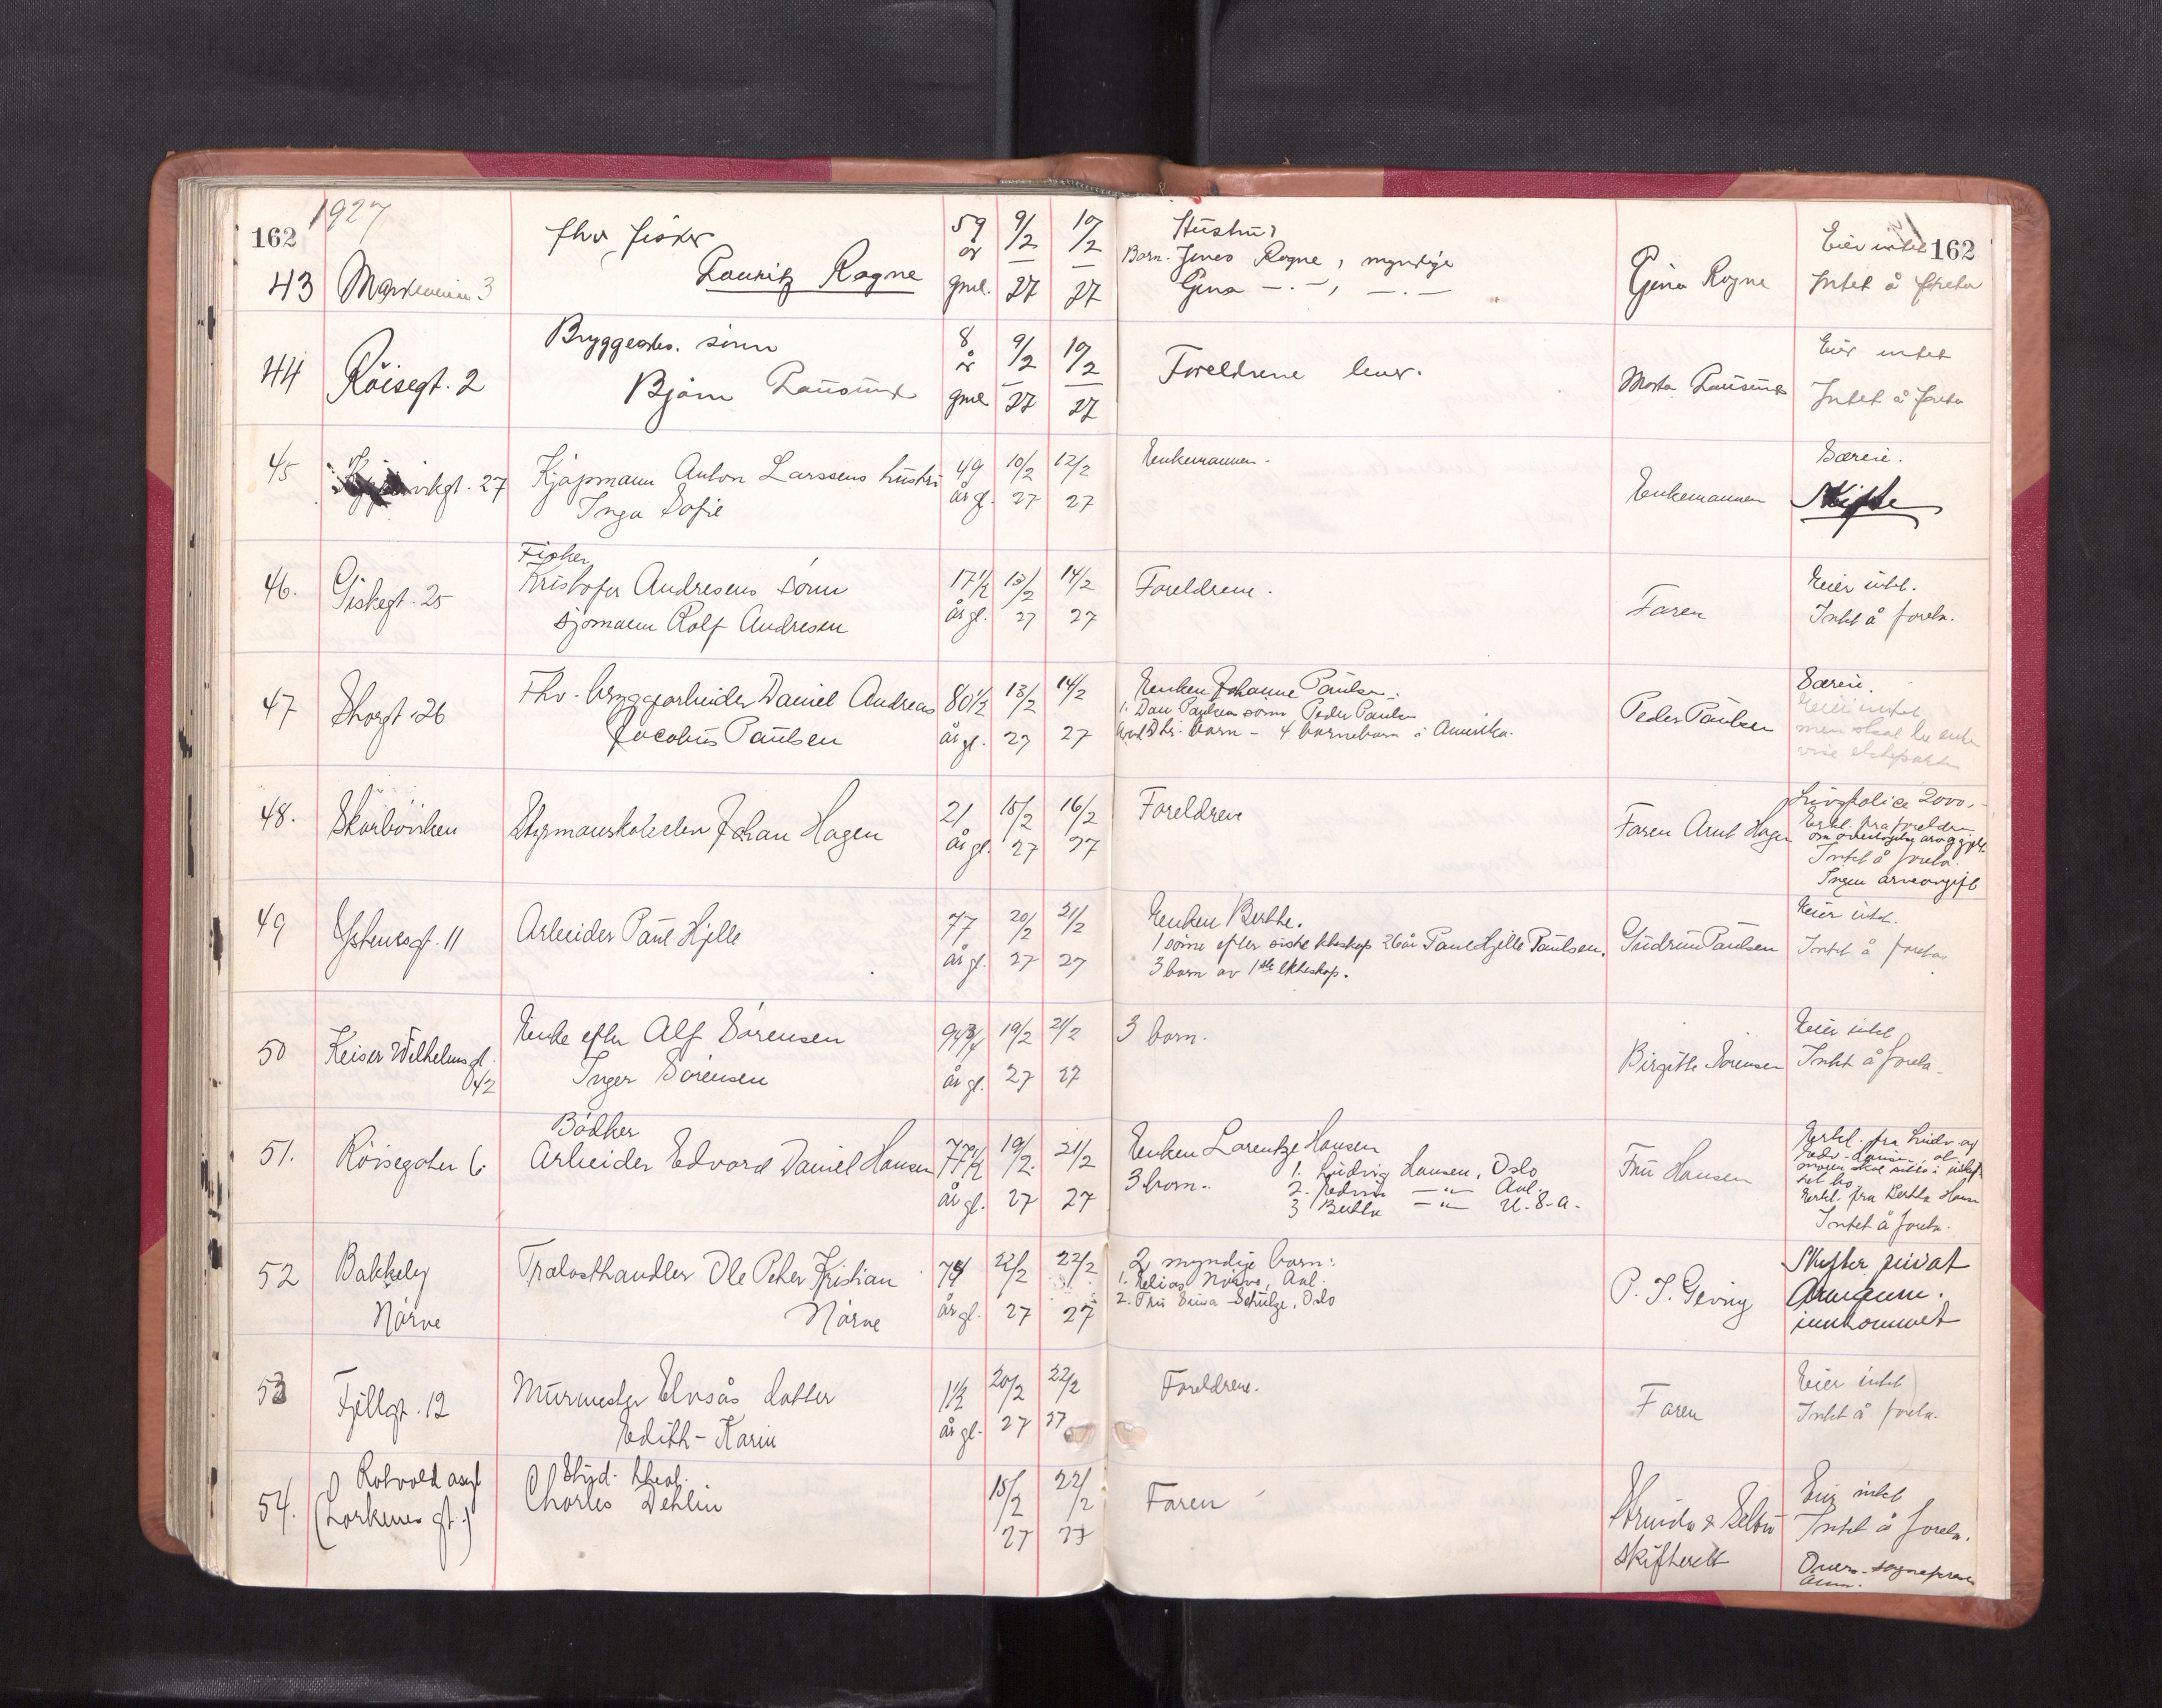 162 1927 162
43
fhv fisker
Lauritz Rogne
59 år gml. 9/2 27 10/2 27
Hustru
Barn. Jenes Rogne, myndige
Gina — . — , — . —
Gina Rogne
Eier intet
Intet å foreta
44 Röisegt. 2
Bryggearb. sönn
Björn Lausund
8 år gml 9/2 27 10/2 27
Foreldrene lever.
Marta Lausund
Eier intet
Intet å foreta
45 27
Kjöpmann Anton Larssens hustru
Inga Sofie
49 år gl. 10/2 27 12/2 27
Enkemannen.
Enkemannen
Særeie.
Skifte
46. Giskegt. 25
Fisker
Kristofer Andresens sönn
sjömann Rolf Andresen
17 1/2 år gl. 13/2 27 14/2 27
Foreldrene.
Faren
Eier intet.
Intet å foreta.
47 Storgt. 26
Fhv. bryggearbeider Daniel Andreas
Jacobus Paulsen
80 1/2 år gl. 13/2 27 14/2 27
Enken Johanne Paulsen.
1. Dan Paulsen sönn Peder Paulsen
barn - 4 barnebarn i Amerika.
Peder Paulsen
Særeie.
Eier intet
men skal
48. Skarböviken
Styrmannskoleelev Johan Hagen
21 år gl. 15/2 27 16/2 27
Foreldrene
Faren Arnt Hagen
Livspolice 2000,-
Erkl. fra foreldre
Intet å foreta.
Ingen arveavgift
49 Ystenesgt. 11
Arbeider Paul Hjelle
77 år gl. 20/2 27 21/2 27
Enken Berthe.
1 sönn efter siste ekteskap 26 år Paul Hjelle Paulsen.
3 barn av 1ste ekteskap.
Gudrun Paulsen
Eier intet.
Intet å foreta
50 Keiser Wilhelms gt.
42
Enke efter Alf Sörensen
Inger Sörensen
år gl. 19/2 27 21/2 27
3 barn.
Birgitte Sörensen
Eier intet
Intet å foreta.
51. Röisegaten 6.
Bödker
Arbeider Edvard Daniel Hansen
77 1/2 år gl. 19/2. 27 21/2 27
Enken Lorentze Hansen
3 barn. 1. Ludvig Hansen, Oslo
2. Edvin — " — Aal.
3 Bertha — " — U.S.A.
Fru Hansen
Erkl. fra Ludv. og
Edv. Hansen, at
moren skal sitte i uskif-
tet bo
Erkl. fra Bertha Hansen
Intet å foreta.
52 Bakkely
Nörve
Trelasthandler Ole Peter Kristian
Nörve
74 år gl. 22/2 27 22/2 27
2 myndige barn:
1. Elias Nörve, Aal.
2. Fru Schulze, Oslo
P. I. Geving
Skifter privat
innkommet
53 Fjellgt. 12
Murmester Elvsås datter
Edith-Karin
1 1/2 år gl. 20/2 27 22/2 27
Foreldrene.
Faren
Eier intet
Intet å foreta.
54. Rotvold asyl
(Lorkenes gt.)
Stud. theol.
Charles Dehlin
15/2 27 22/2 27
Faren
Strinda & Selbu
skifterett
Eier intet
Intet å foreta.